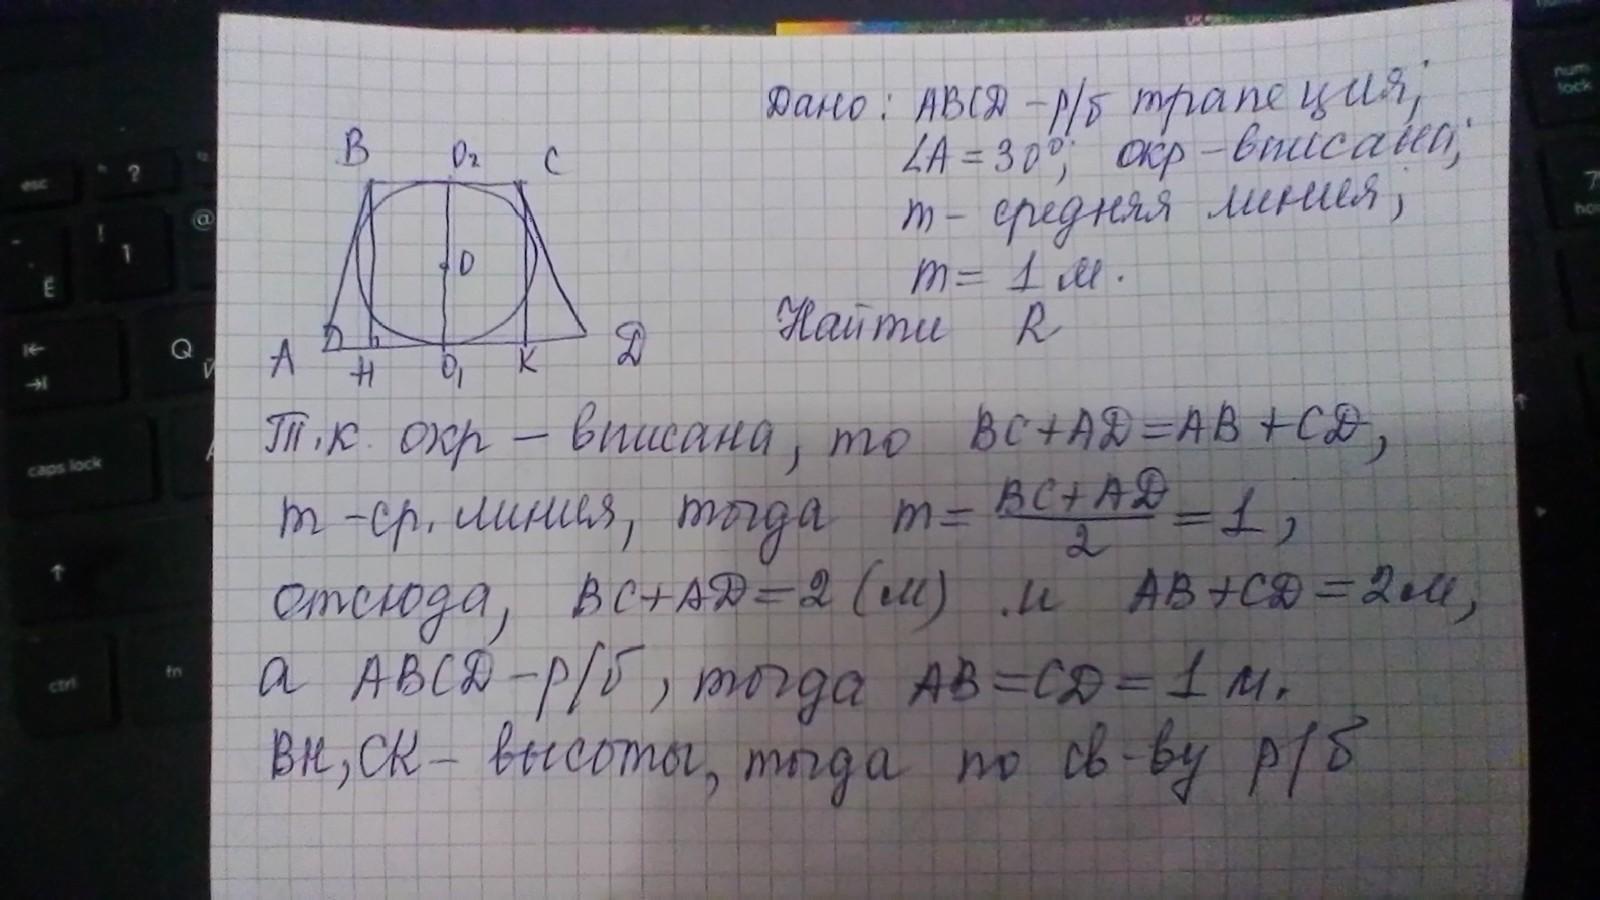 Дано: ABCD - р/б трапеция;
∠A = 30°; окр - вписана;
m - средняя линия;
m = 1 м.
Найти R
B O₂ C
O
A H O₁ K D
Т.к. окр - вписана, то BC + AD = AB + CD,
m - ср. линия, тогда m = (BC + AD)/2 = 1,
отсюда, BC + AD = 2 (м) и AB + CD = 2 м,
а ABCD - р/б, тогда AB = CD = 1 м.
BH, CK - высоты, тогда по св-ву р/б
esc
?
@
!
1
Ё
Q
Й
caps lock
ctrl
fn
num
lock
7